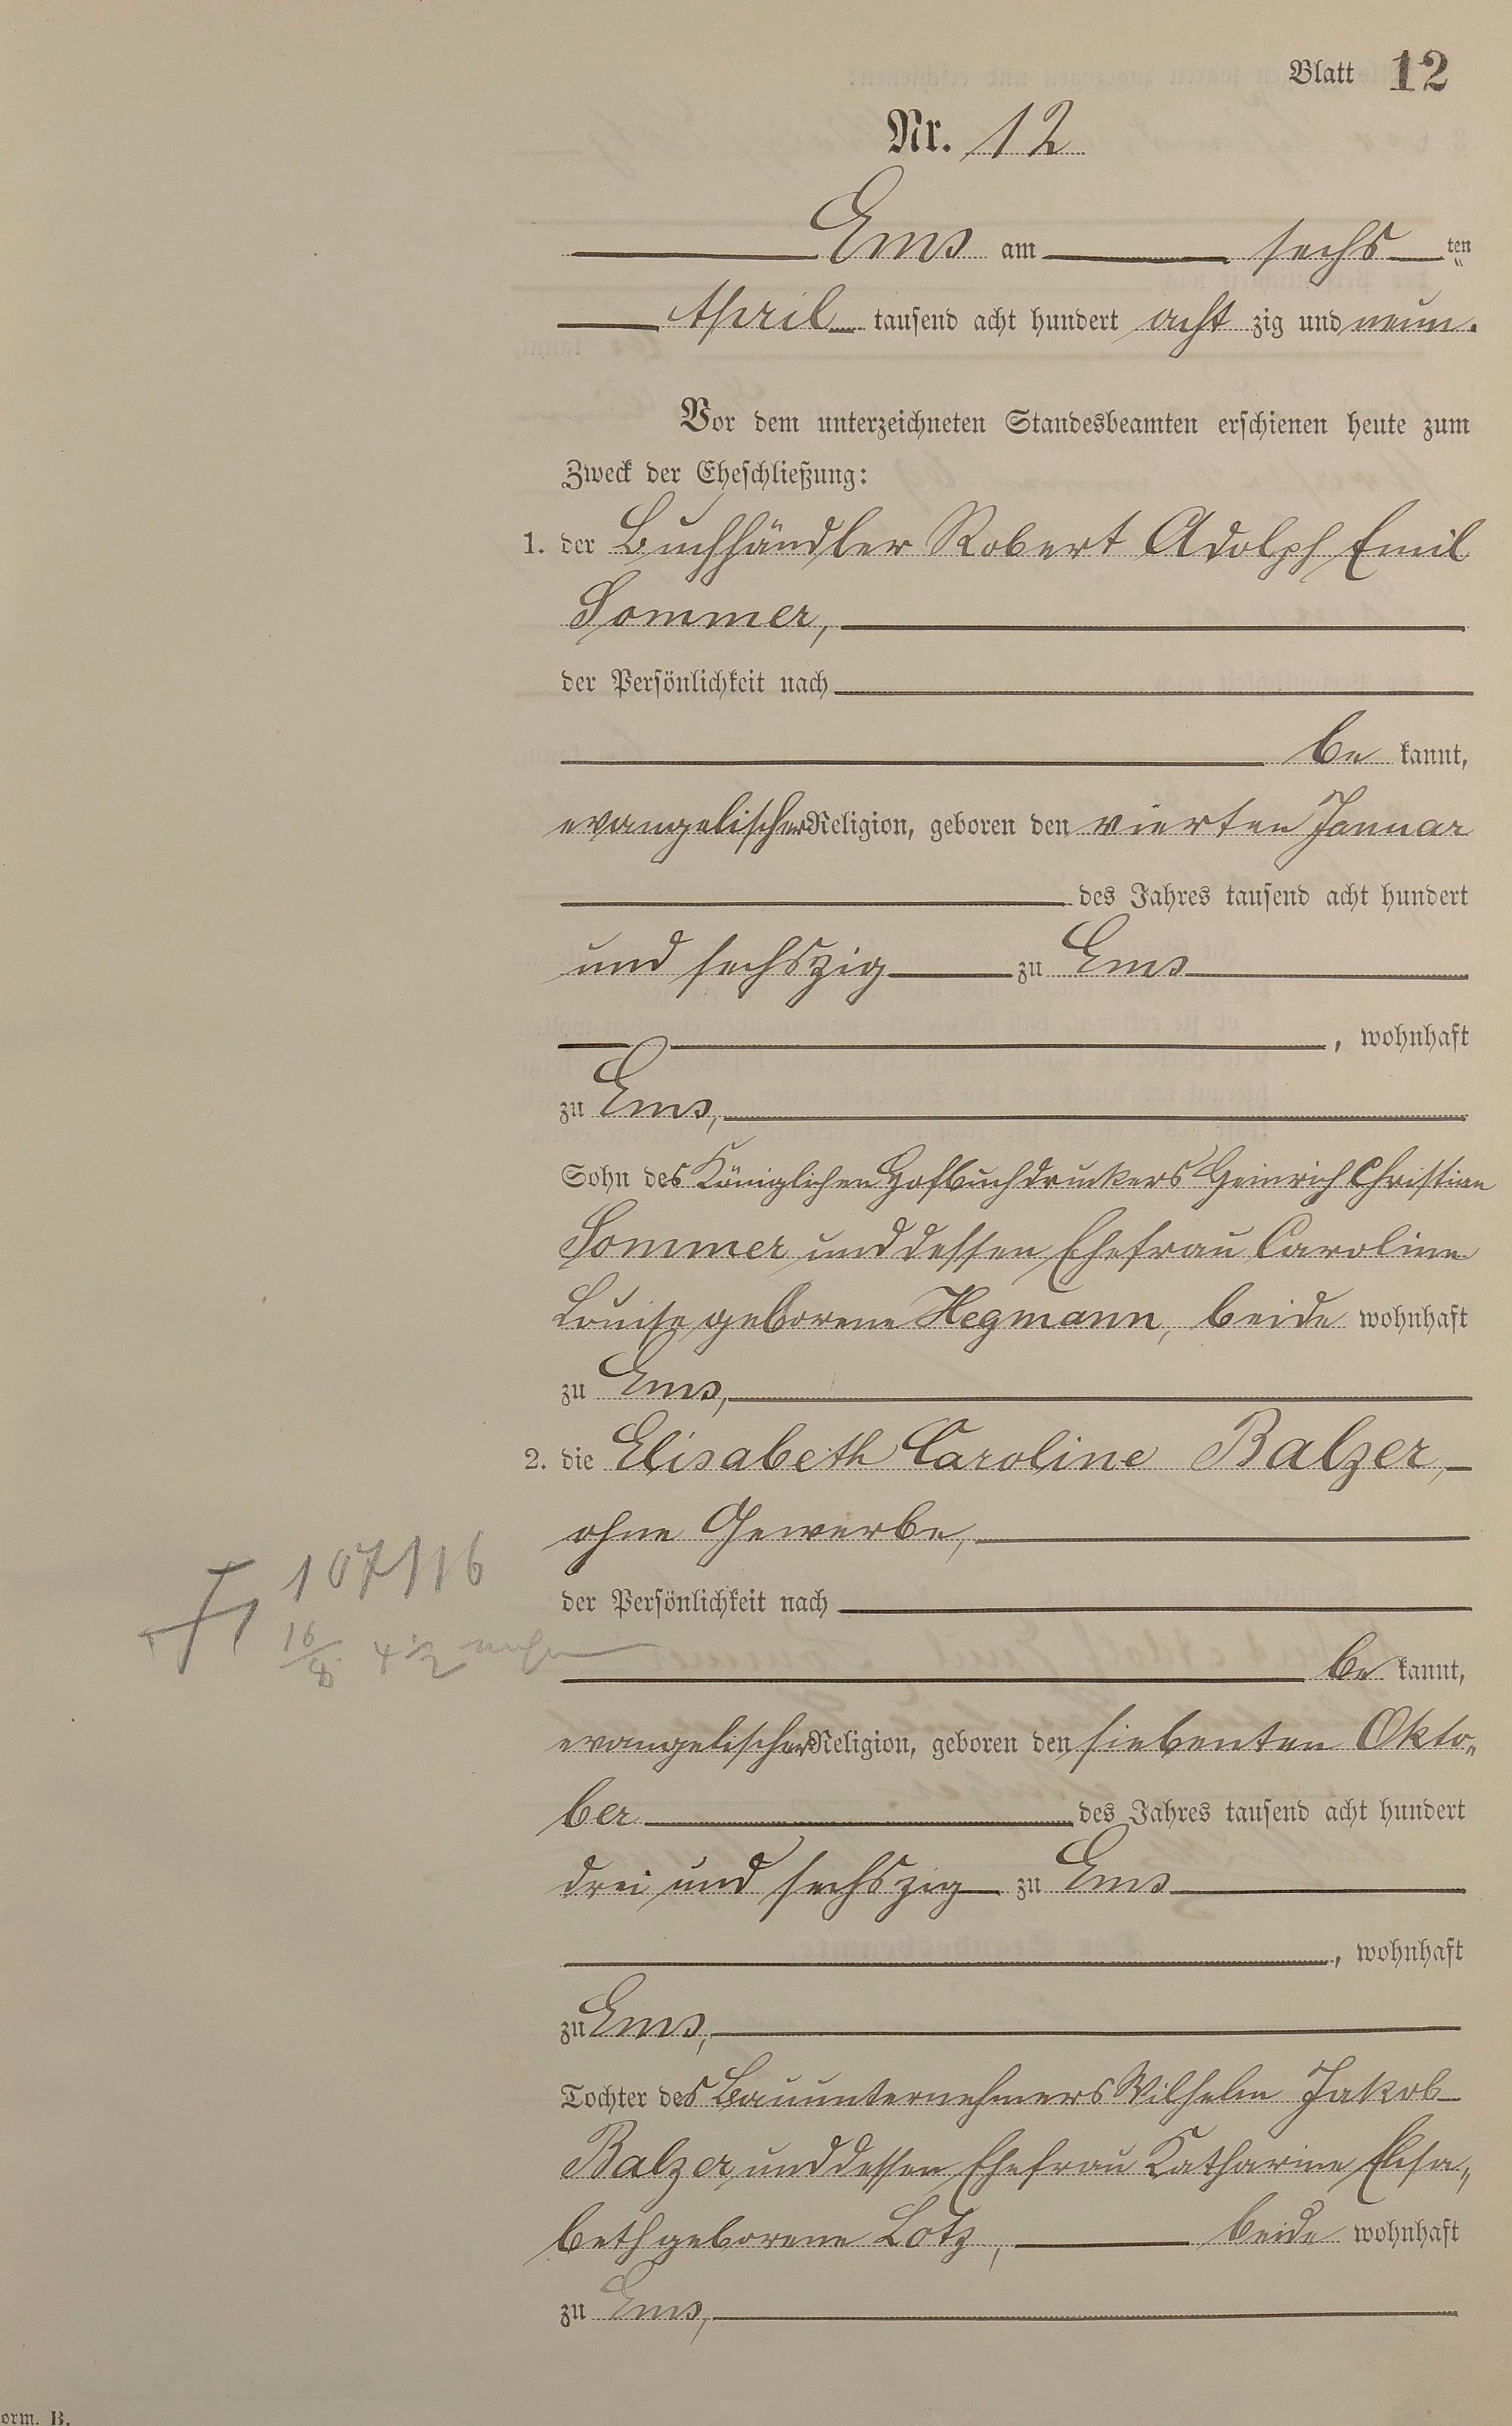 Blatt 12
Nr. 12
Ems am sechs ten
April tausend acht hundert acht zig und neun.
Vor dem unterzeichneten Standesbeamten erschienen heute zum
Zweck der Eheschließung:
1. der Buchhändler Robert Adolph Emil
Sommer,
der Persönlichkeit nach
be kannt,
evangelischer Religion, geboren den vierten Januar
des Jahres tausend acht hundert
und sechszig zu Ems
, wohnhaft
zu Ems,
Sohn des Königlichen Hofbuchdruckers Heinrich Christian
Sommer und dessen Ehefrau Caroline
Louise geborene Hegmann, beide wohnhaft
zu Ems,
2. die Elisabeth Caroline Balzer,
ohne Gewerbe,
der Persönlichkeit nach
107/16
16/8 4 1/2
be kannt,
evangelischer Religion, geboren den siebenten Okto„
ber des Jahres tausend acht hundert
drei und sechszig zu Ems
, wohnhaft
zu Ems,
Tochter des Bauunternehmers Wilhelm Jakob
Balzer und dessen Ehefrau Katharine Elisa„
beth geborene Lotz, beide wohnhaft
zu Ems,
orm. B.